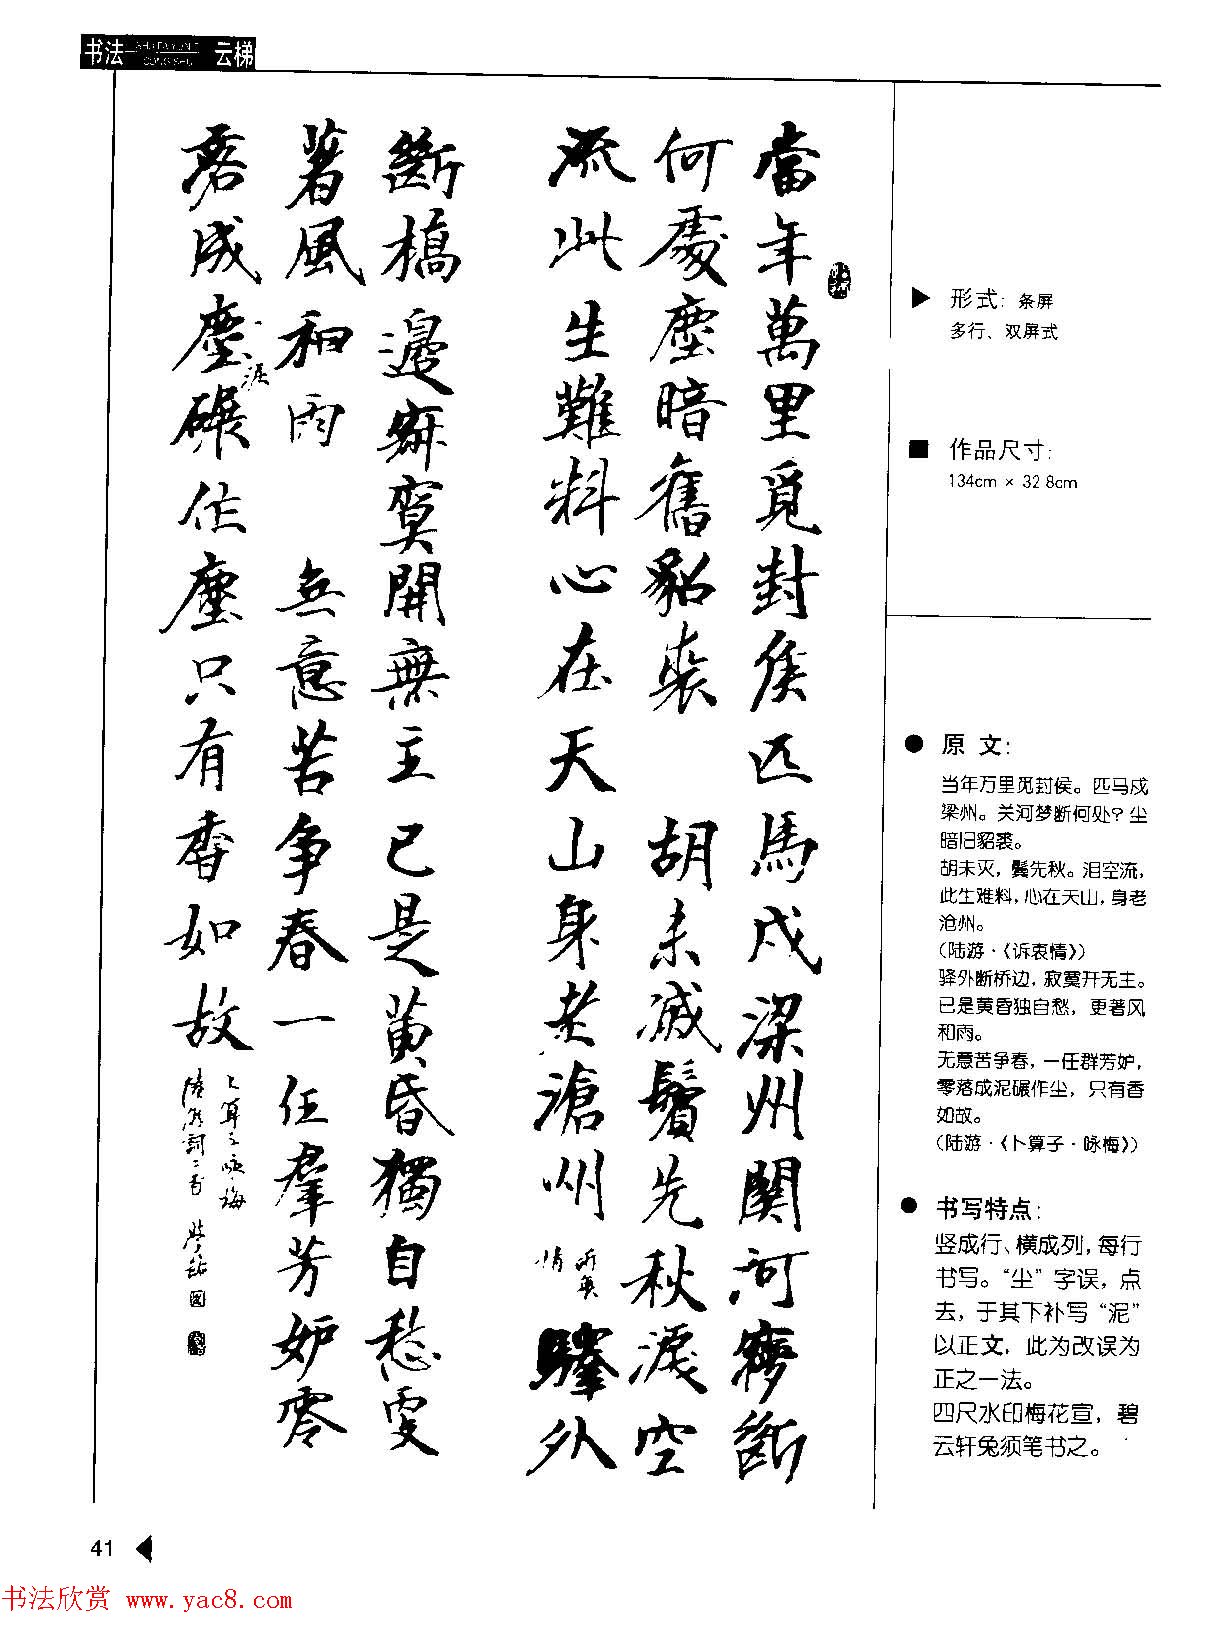 书法 SHUFAYUNTI 云梯
當年萬里覓封侯匹馬戍梁州關河夢斷
何處塵暗舊貂裘 胡未滅鬢先秋淚空
流此生難料心在天山身老滄州 訴衷情 驛外
斷橋邊寂寞開無主已是黄昏獨自愁更
著風和雨 無意苦争春一任羣芳妒零
落成塵碾作塵只有香如故
泥
卜算子咏梅
陸游詞二首
▶ 形式: 条屏
多行、双屏式
■ 作品尺寸:
134cm × 32 8cm
● 原 文:
当年万里觅封侯。匹马戍
梁州。关河梦断何处?尘
暗旧貂裘。
胡未灭，鬓先秋。泪空流，
此生难料，心在天山，身老
沧州。
(陆游·《诉衷情》)
驿外断桥边，寂寞开无主。
已是黄昏独自愁，更著风
和雨。
无意苦争春，一任群芳妒，
零落成泥碾作尘，只有香
如故。
(陆游·《卜算子·咏梅》)
● 书写特点:
竖成行、横成列，每行
书写。“尘”字误，点
去，于其下补写“泥”
以正文，此为改误为
正之一法。
四尺水印梅花宣，碧
云轩兔须笔书之。
41
书法欣赏 www.yac8.com